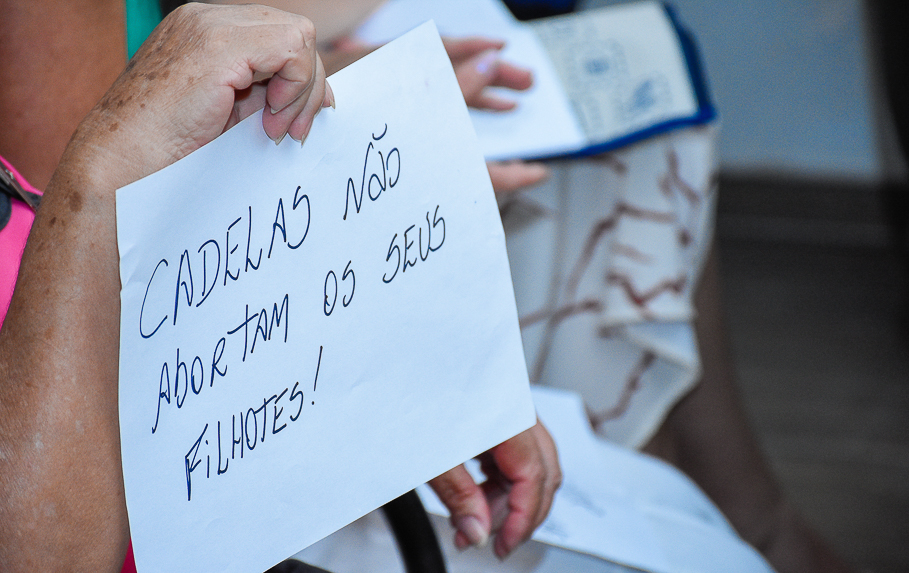 CADELAS NÃO
ABORTAM OS SEUS
FILHOTES!